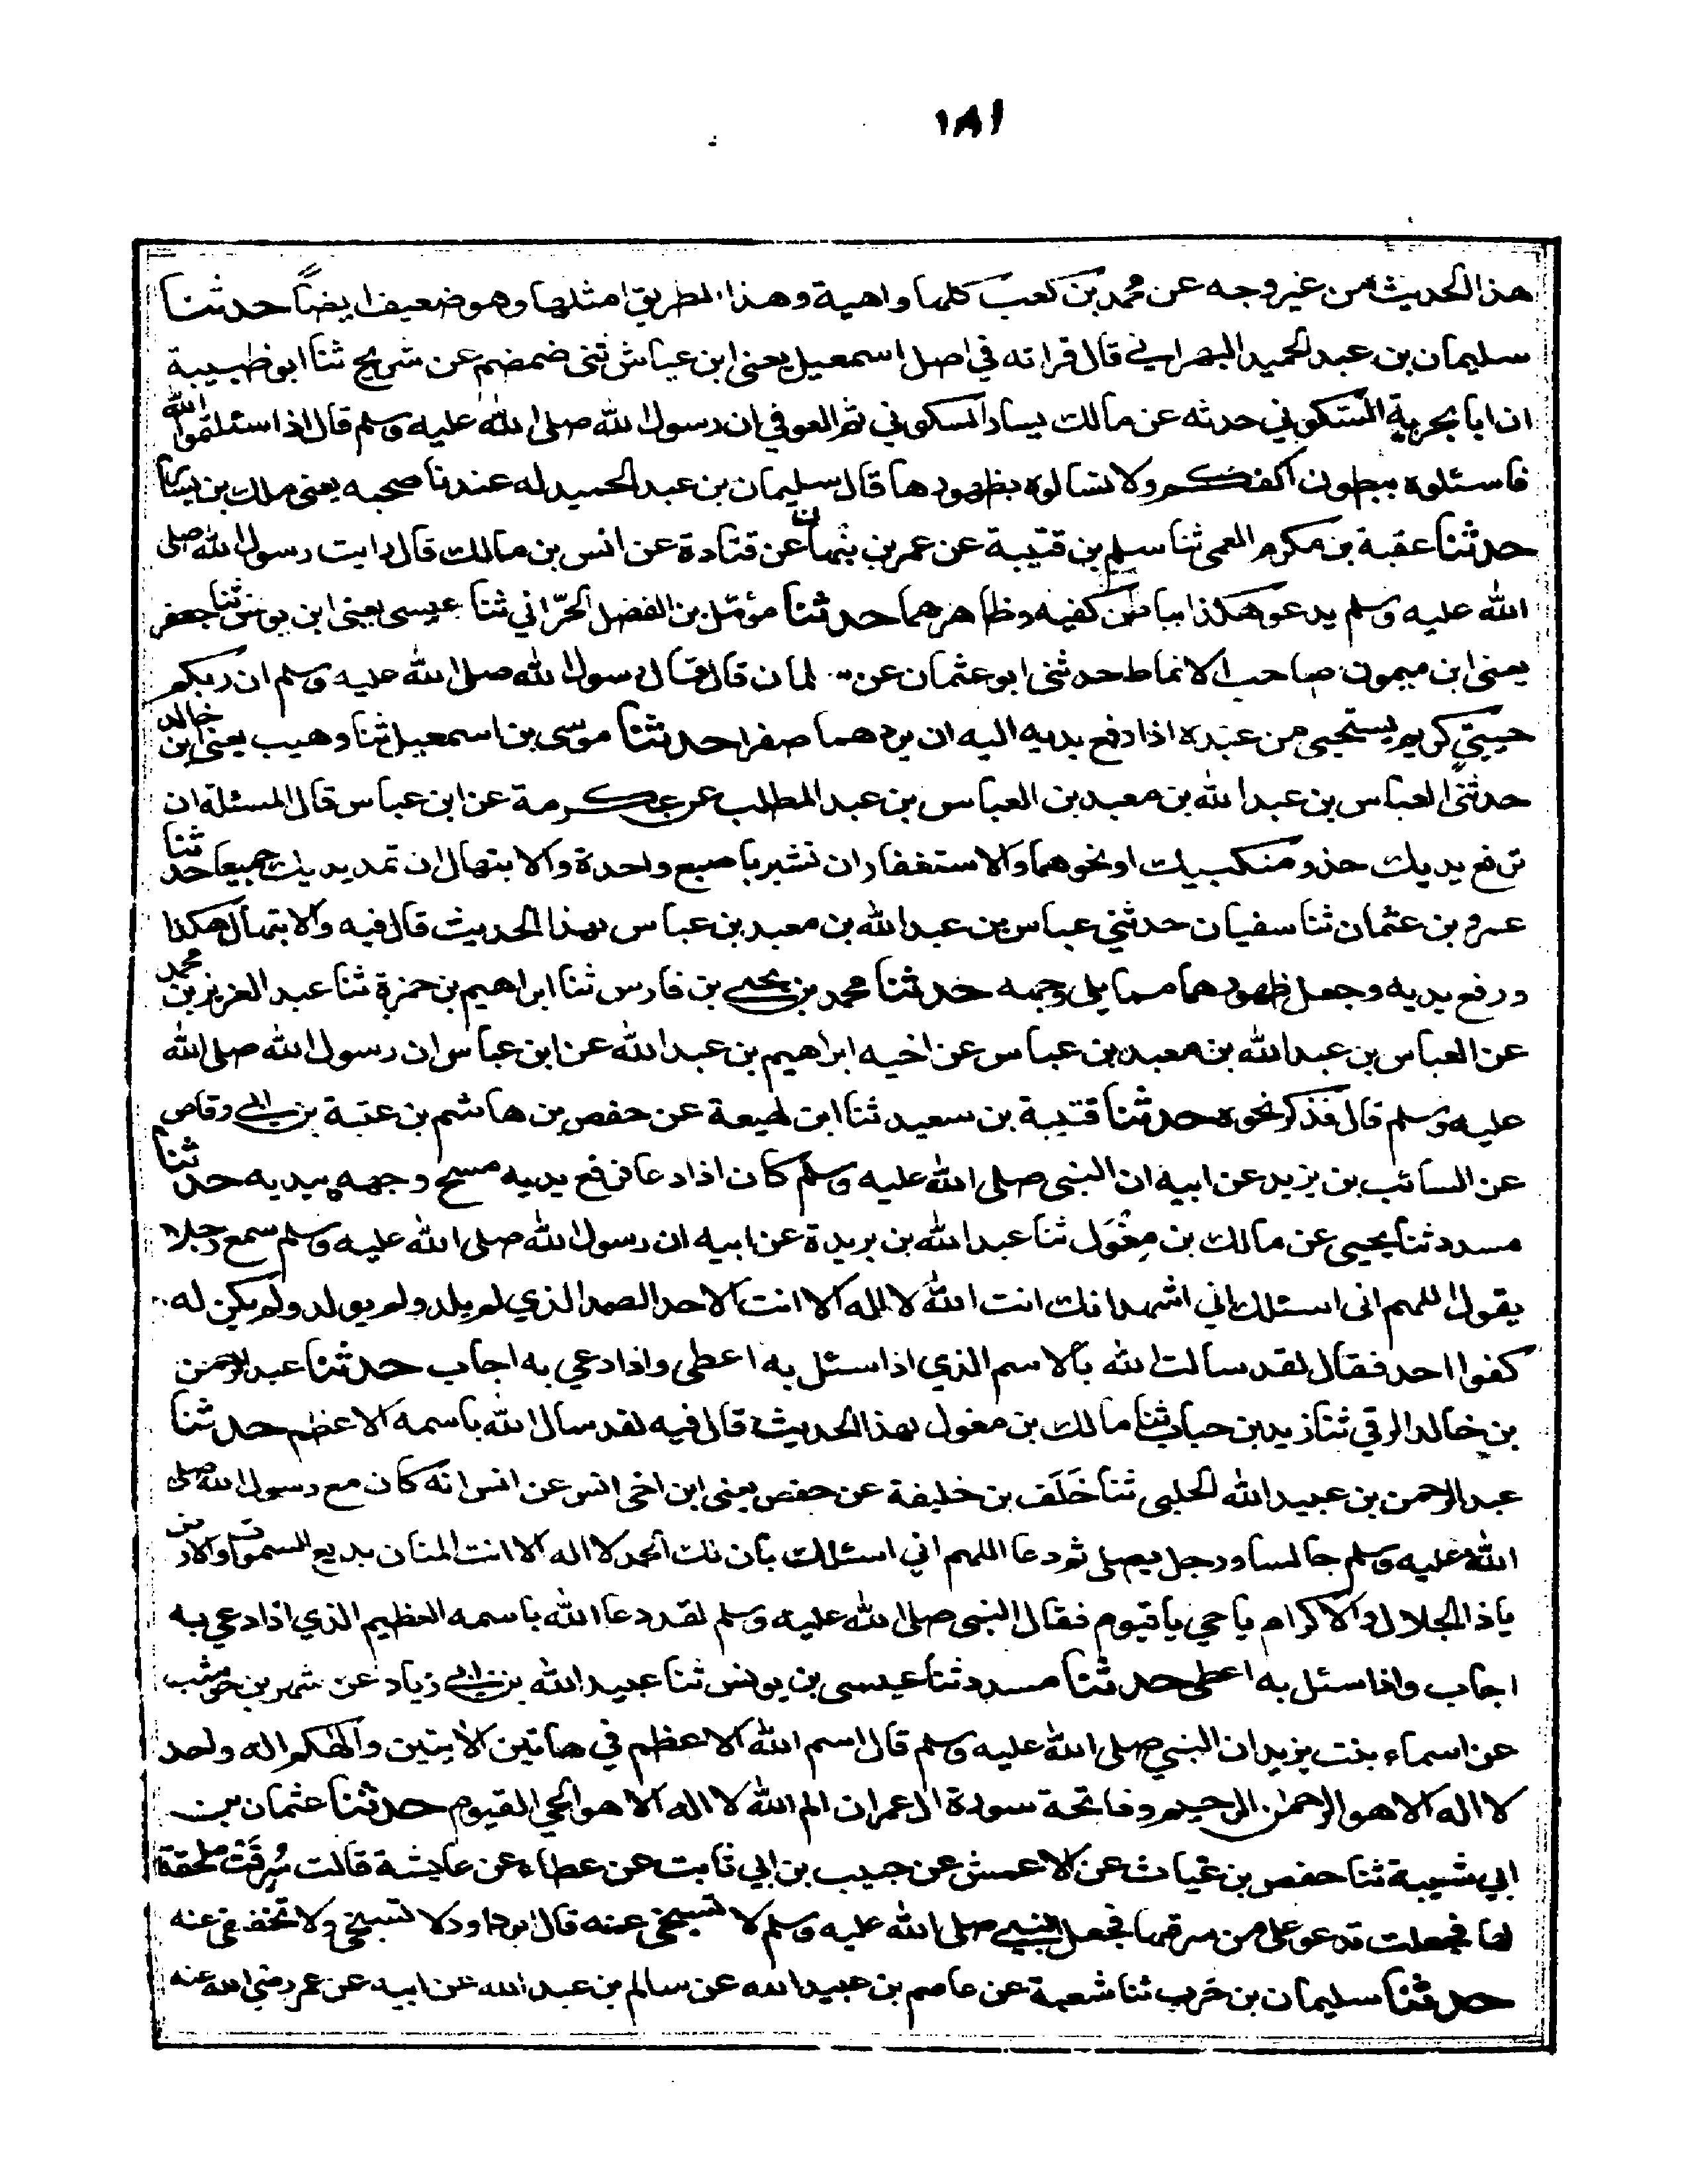 ١٨١
هذا الحديث من غير وجه عن محمد بن كعب كلها واهية وهذا الطريق امثلها وهو ضعيف ايضاً حدثنا
سليمان بن عبد الحميد البهراني قال قراته في اصل اسمعيل يعنى ابن عياش ثنى ضمضم عن شريح ثنا ابو ظبيبة
ان ابا بحرية السكوني حدثه عن مالك يسار السكوني ثم العوفي ان رسول الله صلى الله عليه وسلم قال اذا سئلتموا الله
فاسئلوه ببطون اكفكم ولا تسالوه بظهورها قال سليمان بن عبد الحميد له عندنا صحبه يعنى مالك بن يسار
حدثنا عقبة بن مكرم العمى ثنا سلم بن قتيبة عن عمر بن نبهان عن قتادة عن انس بن مالك قال رايت رسول الله صلى
الله عليه وسلم يدعو هكذا بباطن كفيه وظاهرهما حدثنا مؤمّل بن الفضل الحرّاني ثنا عيسى يعنى ابن يونس ثنا جعفر
يعنى ابن ميمون صاحب الانماط حدثنى ابو عثمان عن سلمان قال قال رسول الله صلى الله عليه وسلم ان ربكم
حيىّ كريم يستحيى من عبده اذا رفع يديه اليه ان يردهما صفرا حدثنا موسى بن اسمعيل ثنا وهيب يعنى ابن خالد
حدثنى العباس بن عبد الله بن معبد بن العباس بن عبد المطلب عن عكرمة عن ابن عباس قال المسئلة ان
ترفع يديك حذو منكبيك او نحوهما والاستغفار ان تشير باصبع واحدة والابتهال ان تمد يديك جميعا حدثنا
عمرو بن عثمان ثنا سفيان حدثني عباس بن عبد الله بن معبد بن عباس بهذا الحديث قال فيه والابتهال هكذا
ورفع يديه وجعل ظهورهما مما يلى وجهه حدثنا محمد بن يحيى بن فارس ثنا ابراهيم بن حمزة ثنا عبد العزيز بن محمد
عن العباس بن عبد الله بن معبد بن عباس عن اخيه ابراهيم بن عبد الله عن ابن عباس ان رسول الله صلى الله
عليه وسلم قال فذكر نحوه حدثنا قتيبة بن سعيد ثنا ابن لهيعة عن حفص بن هاشم بن عتبة بن ابى وقاص
عن السائب بن يزيد عن ابيه ان النبى صلى الله عليه وسلم كان اذا دعا فرفع يديه مسح وجهه بيديه حدثنا
مسدد ثنا يحيى عن مالك بن مِغْوَل ثنا عبد الله بن بريدة عن ابيه ان رسول الله صلى الله عليه وسلم سمع رجلا
يقول اللهم انى اسئلك اني اشهد انك انت الله لا اله الا انت الاحد الصمد الذي لم يلد ولم يولد ولم يكن له
كفوا احد فقال لقد سالت الله بالاسم الذي اذا سئل به اعطى واذا دعي به اجاب حدثنا عبد الرحمن
بن خالد الرقي ثنا زيد بن حباب ثنا مالك بن مغول بهذا الحديث قال فيه لقد سال الله باسمه الاعظم حدثنا
عبد الرحمن بن عبيد الله الحلبى ثنا خَلَف بن خليفة عن حفص يعنى ابن اخى انس عن انس انه كان مع رسول الله صلى
الله عليه وسلم جالسا ورجل يصلى ثم دعا اللهم اني اسئلك بان لك الحمد لا اله الا انت المنان بديع السموات والارض
ياذا الجلال والاكرام يا حي يا قيوم فقال النبى صلى الله عليه وسلم لقد دعا الله باسمه العظيم الذي اذا دعي به
اجاب واذا سئل به اعطى حدثنا مسدد ثنا عيسى بن يونس ثنا عبيد الله بن ابى زياد عن شهر بن حوشب
عن اسماء بنت يزيد ان النبي صلى الله عليه وسلم قال اسم الله الاعظم في هاتين الايتين والهكم اله واحد
لا اله الا هو الرحمن الرحيم وفاتحة سورة ال عمران الم الله لا اله الا هو الحي القيوم حدثنا عثمان بن
ابي شيبة ثنا حفص بن غياث عن الاعمش عن حبيب بن ابي ثابت عن عطاء عن عايشة قالت سُرِقَتْ ملحقة
لها فجعلت تدعو على من سرقها فجعل النبى صلى الله عليه وسلم لا تسبخي عنه قال ابو داود لا تسبخي ولا تخففي عنه
حدثنا سليمان بن حَرب ثنا شعبة عن عاصم بن عبيد الله عن سالم بن عبد الله عن ابيه عن عمر رضي الله عنه